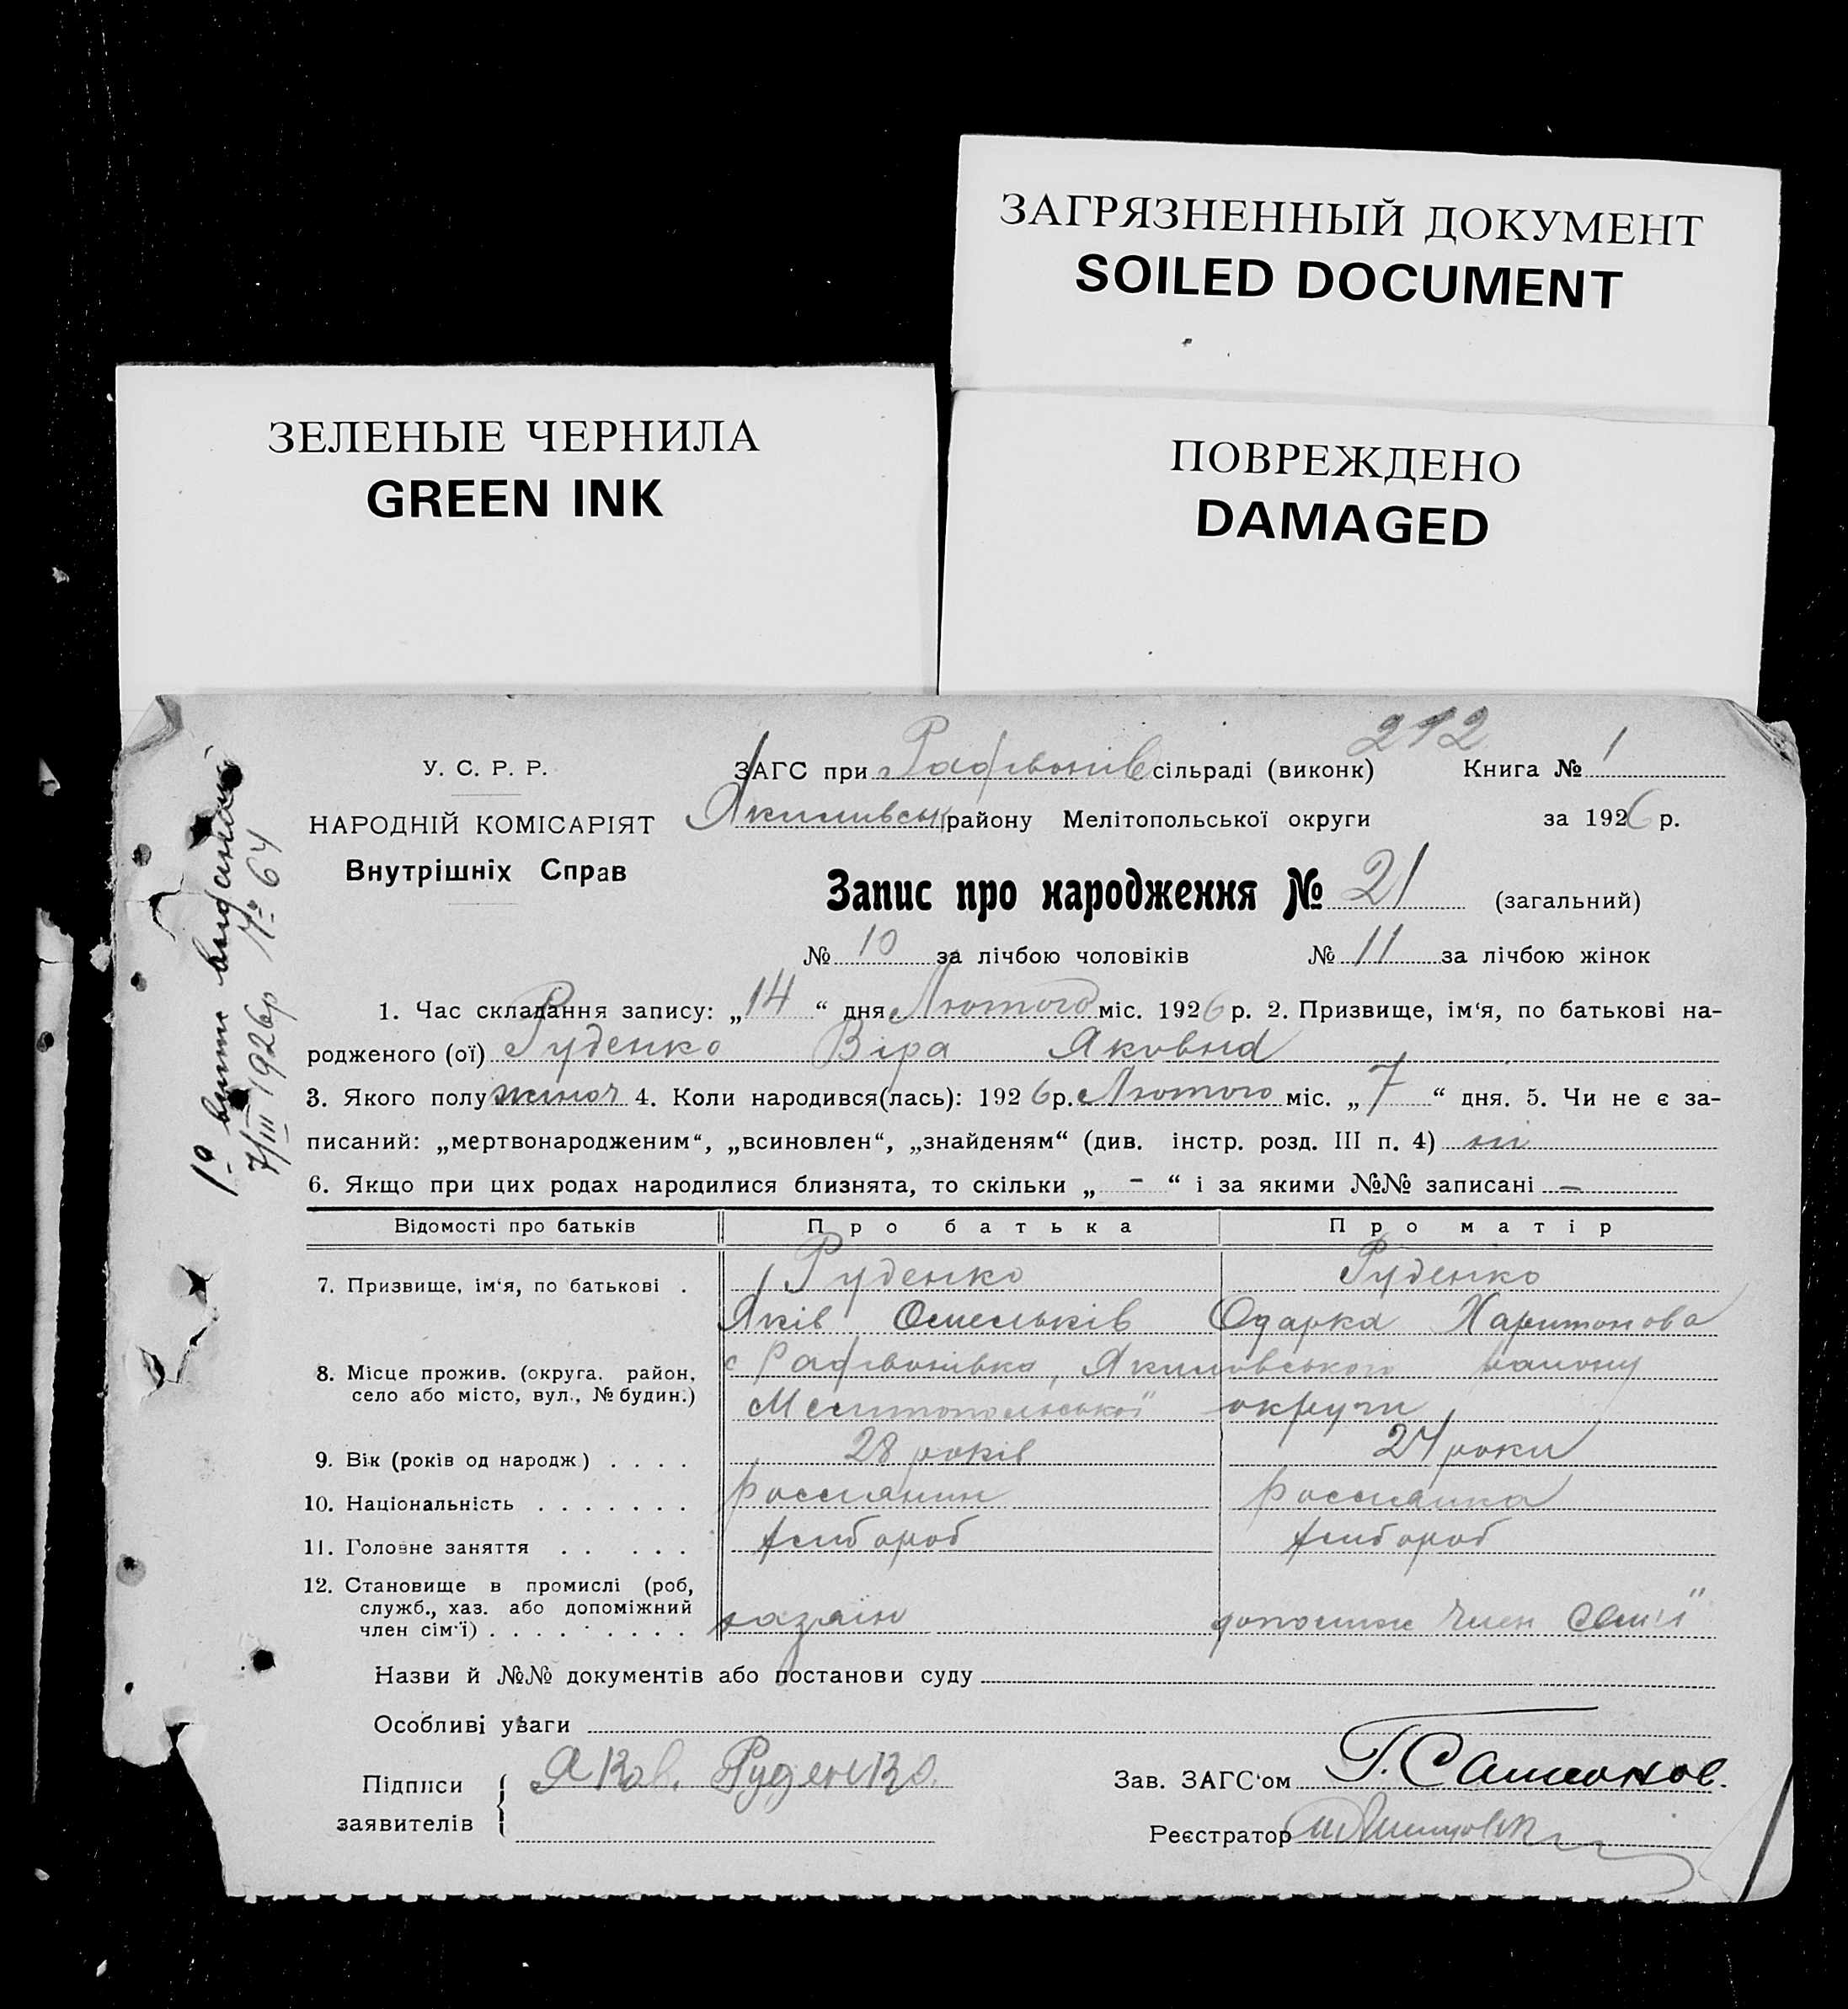 ЗАГРЯЗНЕННЫЙ ДОКУМЕНТ
SOILED DOCUMENT
ЗЕЛЕНЫЕ ЧЕРНИЛА
GREEN INK
ПОВРЕЖДЕНО
DAMAGED
212
У. С. Р. Р.
НАРОДНІЙ КОМІСАРІЯТ
Внутрішніх Справ
ЗАГС при Радівонів сільраді (виконк) Книга № 1
Якимивськ району Мелітопольської округи за 1926 р.
Запис про народження № 21 (загальний)
№ 10 за лічбою чоловіків № 11 за лічбою жінок
1. Час складання запису: „14“ дня Лютого міс. 1926 р. 2. Призвище, ім‘я, по батькові на-
родженого (ої) Руденко Віра Яковна
3. Якого полу жиноч 4. Коли народився(лась): 1926 р. Лютого міс. „7“ дня. 5. Чи не є за-
писаний: „мертвонародженим“, „всиновлен“, „знайденям“ (див. інстр. розд. III п. 4) ні
6. Якщо при цих родах народилися близнята, то скільки „ - “ і за якими №№ записані —
Відомості про батьків Про батька Про матір
7. Призвище, ім‘я, по батькові . Руденко Руденко
Яків Омельків Одарка Харитонова
8. Місце прожив. (округа. район, село або місто, вул., № будин.) с Радівонівка, Якимовського району
Мелитопольської округи
9. Вік (років од народж) . . . . 28 років 24 роки
10. Національність . . . . . . . россиянин россиянка
11. Головне заняття . . . . . хлибороб хлибороб
12. Становище в промислі (роб,
служб., хаз. або допоміжний
член сім‘ї) . . . . . . . . . хазяін допомиж член семії
Назви й №№ документів або постанови суду
Особливі уваги
Підписи заявителів Яков. Руденко.
Зав. ЗАГС‘ом Г. Самсонов.
Реєстратор
1й
7/III 1926р № 64